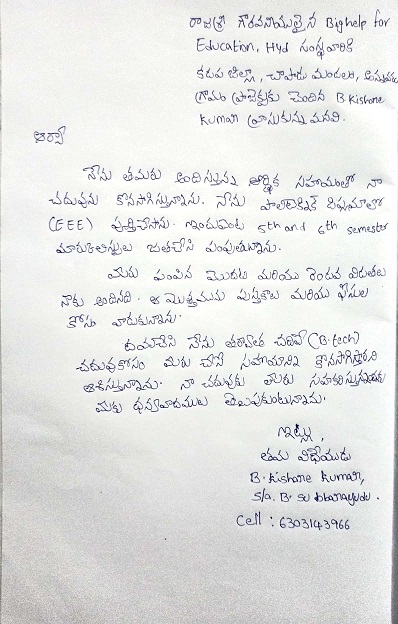 రాజశ్రీ గౌరవనీయులైన Bighelp for
Education, Hyd సంస్థవారికి
కడప జిల్లా, చాపాడు మండలం,
గ్రామం ప్రాజెక్టుకు చెందిన B Kishore
Kumar వ్రాసుకున్న మనవి.
ఆర్యా
నేను తమరు అందిస్తున్న ఆర్థిక సహాయంతో నా
చదువును కొనసాగిస్తున్నాను. నేను పాలిటెక్నిక్ డిప్లమాలో
(EEE) పూర్తిచేసాను. ఇందువెంట 5th and 6th semester
మార్కులిస్టులు జతచేసి పంపుతున్నాను.
మీరు పంపిన మొదటి మరియు రెండవ విడతలు
నాకు అందినది. ఆ మొత్తమును పుస్తకాలు మరియు ఫీజుల
కోసం వాడుకున్నాను.
దయచేసి నేను తరువాత చదివే (B.tech)
చదువుకోసం మీరు చేసే సహాయాన్ని కొనసాగిస్తారని
ఆశిస్తున్నాను. నా చదువుకు మీరు సహకరిస్తున్నందుకు
మీకు ధన్యవాదములు తెలుపుకుంటున్నాను.
ఇట్లు,
తమ విధేయుడు
B. Kishore Kumar,
S/o. B. Subbarayudu.
Cell : 6303143966